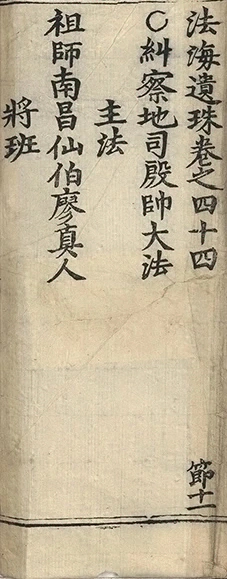 法海遺珠卷之四十四
節十一
○糾察地司殷帥大法
主法
祖師南昌仙伯廖真人
將班